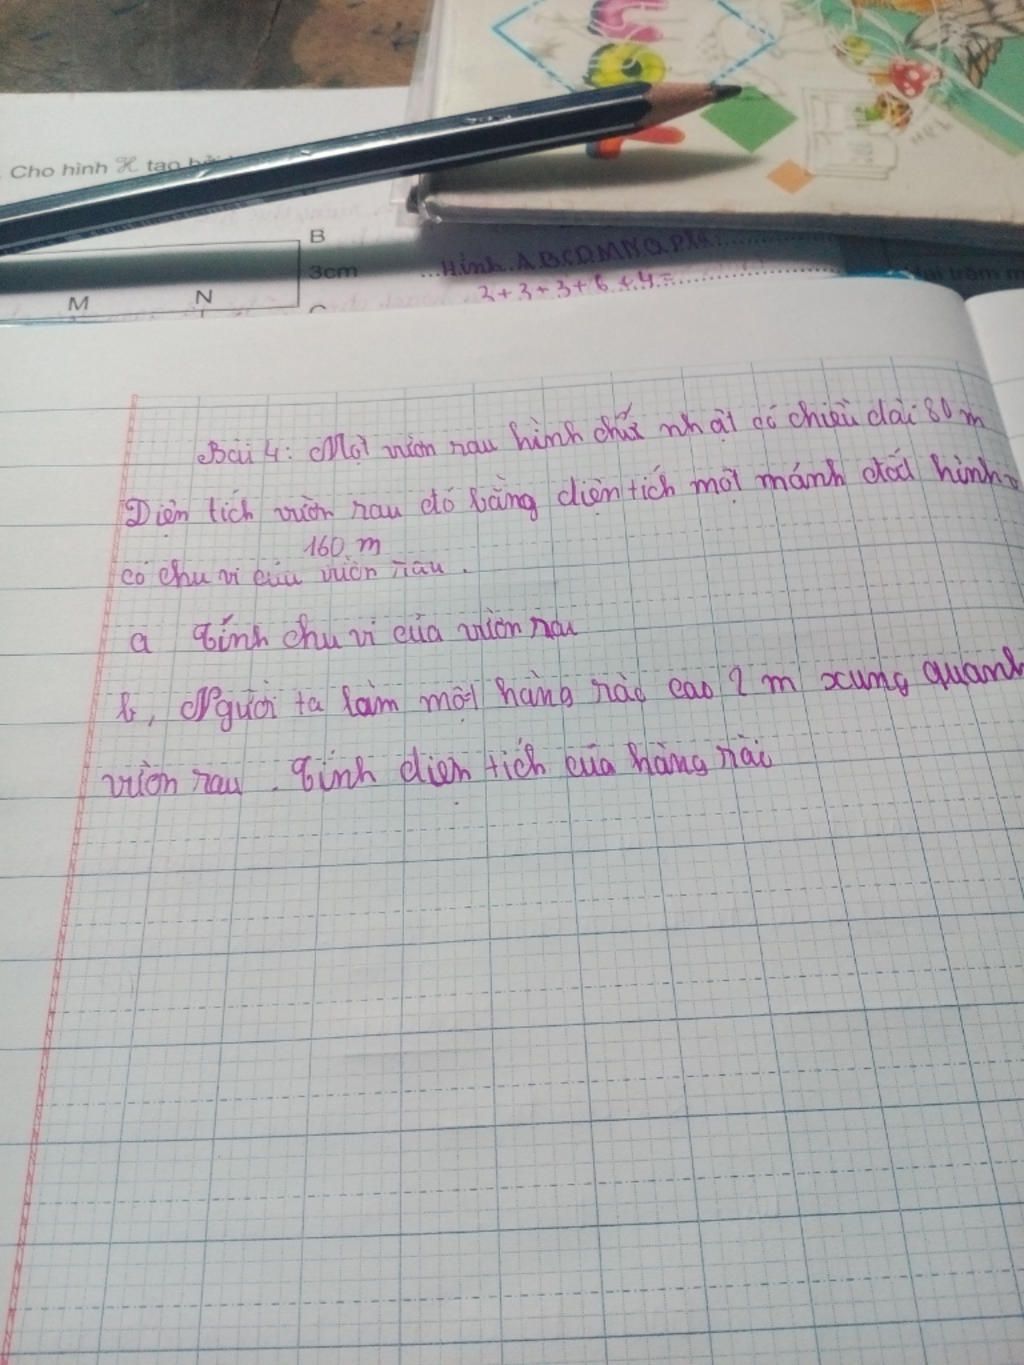 Cho hình ℋ tạo bởi
B
3cm
M
N
Hình ABCDMNQP là
3+3+3+6+4=
Bài 4: Một vườn rau hình chữ nhật có chiều dài 80 m
Diện tích vườn rau đó bằng diện tích một mảnh đất hình
160 m
có chu vi của vườn rau.
a Tính chu vi của vườn rau
b, Người ta làm một hàng rào cao 2 m xung quanh
vườn rau. Tính diện tích của hàng rào